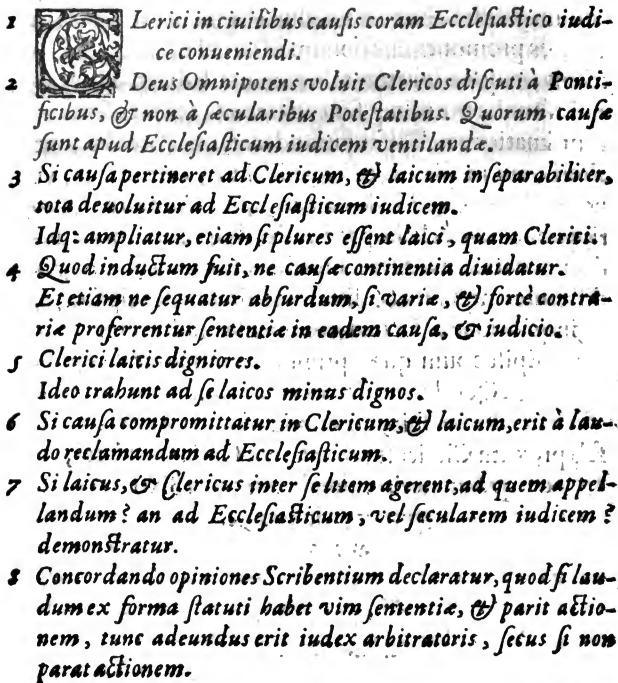 1 CLerici in ciuilibus causis coram Ecclesiastico iudi-
ce conueniendi.
2 Deus Omnipotens voluit Clericos discuti à Ponti-
ficibus, & non à sæcularibus Potestatibus. Quorum causæ
sunt apud Ecclesiasticum iudicem ventilandæ.
3 Si causa pertineret ad Clericum, & laicum inseparabiliter,
tota deuoluitur ad Ecclesiasticum iudicem.
Idq: ampliatur, etiam si plures essent laici, quam Clerici.
4 Quod inductum fuit, ne causæ continentia diuidatur.
Et etiam ne sequatur absurdum, si variæ, & fortè contra-
riæ proferrentur sententiæ in eadem causa, & iudicio.
5 Clerici laicis digniores.
Ideo trahunt ad se laicos minus dignos.
6 Si causa compromittatur in Clericum, & laicum, erit à lau-
do reclamandum ad Ecclesiasticum.
7 Si laicus, & Clericus inter se litem agerent, ad quem appel-
landum? an ad Ecclesiasticum, vel secularem iudicem?
demonstratur.
8 Concordando opiniones Scribentium declaratur, quod si lau-
dum ex forma statuti habet vim sententiæ, & parit actio-
nem, tunc adeundus erit iudex arbitratoris, secus si non
parat actionem.